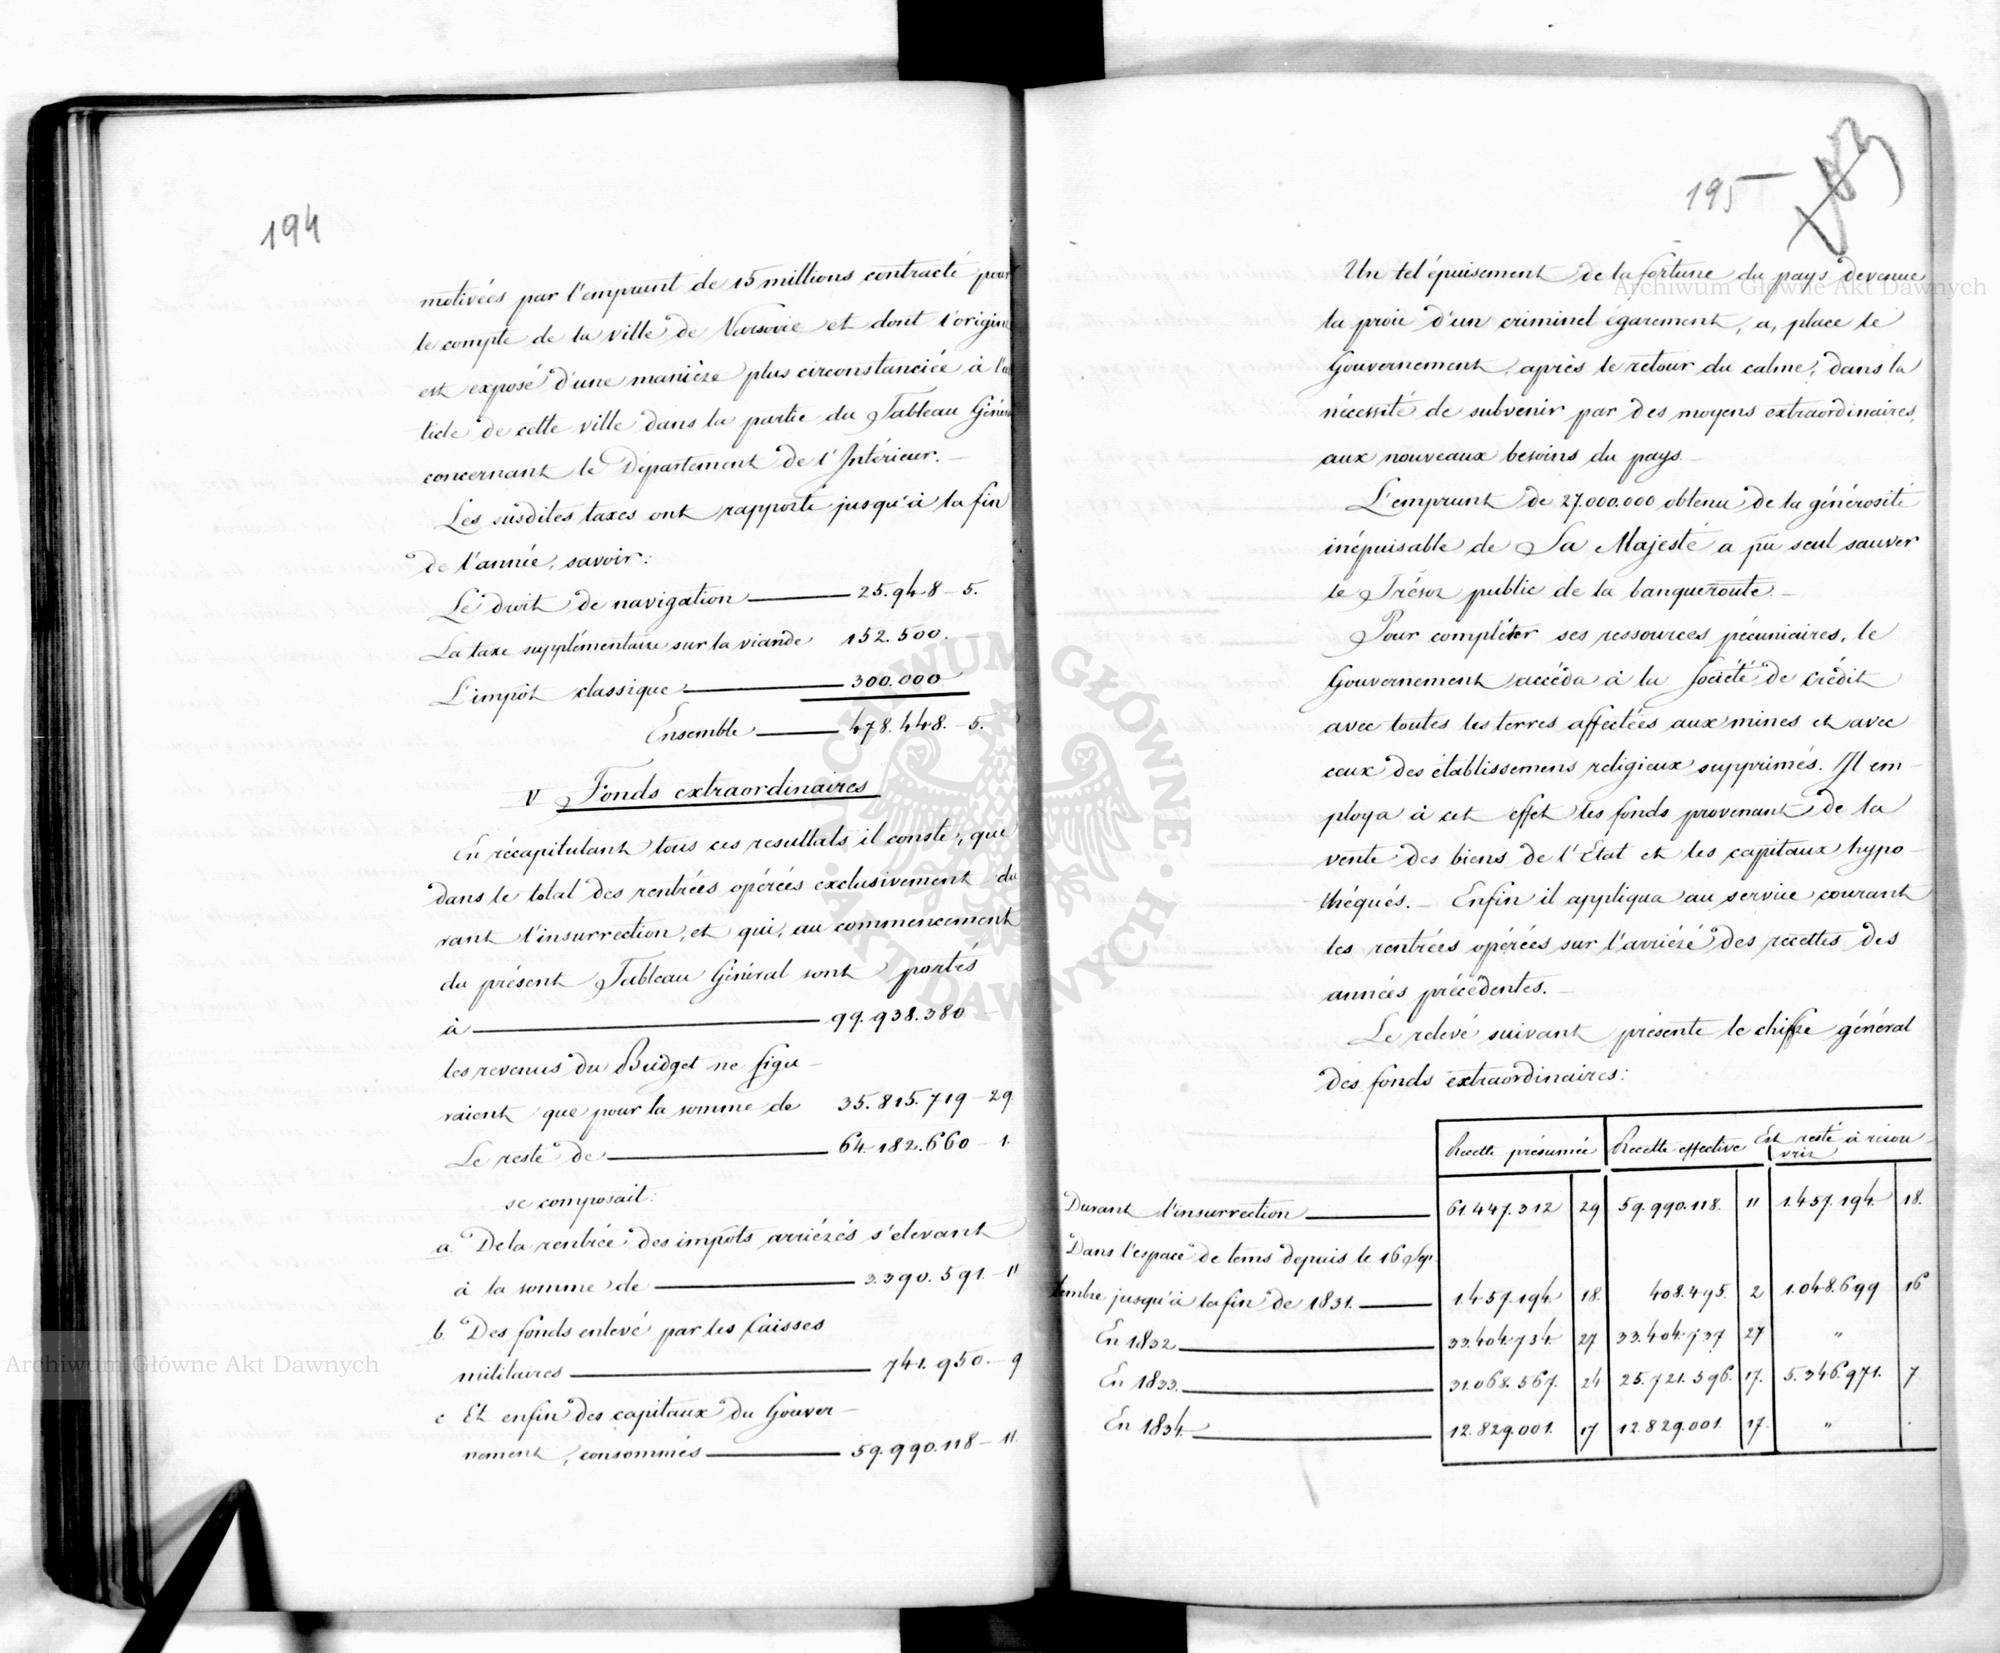 194
motivées par l'emprunt de 15 millions contracté pour
le compte de la ville de Varsovie et dont l'origine
est exposé d'une manière plus circonstanciée à l'ar
ticle de cette ville dans la partie du Tableau Général
concernant le Département de l'Intérieur.
Les susdites taxes ont rapporté jusqu'à la fin
de l'année, savoir:
Le droit de navigation 25.948 - 5.
La taxe supplémentaire sur la viande 152.500.
L'impôt classique 300.000
Ensemble 478.448. - 5.
V Fonds extraordinaires
En récapitulant tous ces resultats il conste, que
dans le total des rentrées opérées exclusivement du
rant l'insurrection, et qui, au commencement
du présent Tableau Général sont portés
à 99.938.380
les revenus du Budget ne figu-
raient que pour la somme de 35.815.719 - 29
Le reste de 64.182.660 - 1.
se composait:
a. De la rentrée des impôts arriérés s'élevant
à la somme de 3.390.591. - 11
b. Des fonds enlevé par les Caisses
militaires 741.950. - 9
c Et enfin des capitaux du Gouver-
nement, consommés 59.990.118 - 11.
195
Un tel épuisement de la fortune du pays devenue
la proie d'un criminel égarement, a, place le
Gouvernement, après le retour du calme, dans la
nécessité de subvenir par des moyens extraordinaires,
aux nouveaux besoins du pays.
L'emprunt de 27.000.000 obtenu de la générosité
inépuisable de Sa Majesté a pu seul sauver
le Trésor public de la banqueroute.
Pour compléter ses ressources pécuniaires, le
Gouvernement accéda à la Société de crédit
avec toutes les terres affectées aux mines et avec
ceux des établissemens religieux supprimés. Il em-
ploya à cet effet les fonds provenant de la
vente des biens de l'Etat et les capitaux hypo-
théqués. - Enfin il appliqua au service courant
les rentrées opérées sur l'arriéré des recettes des
années précédentes.
Le relevé suivant présente le chiffre général
des fonds extraordinaires:
Recette présumée Recette effective Est resté à recou-
vrir
Durant l'insurrection 61.447.312 29 59.990.118. 11 1.457.194. 18.
Dans l'espace de tems depuis le 16 Sep
tembre jusqu'à la fin de 1831. 1.457.194. 18. 408.495. 2 1.048.699 16
En 1832 33.404.734. 27 33.404.737 27 "
En 1833. 31.068.567. 24 25.721.596. 17. 5.346.971. 7
En 1834. 12.829.001. 17 12.829.001 17. "
Archiwum Główne Akt Dawnych
Archiwum Główne Akt Dawnych
ARCHIWUM GŁÓWNE · AKT DAWNYCH ·